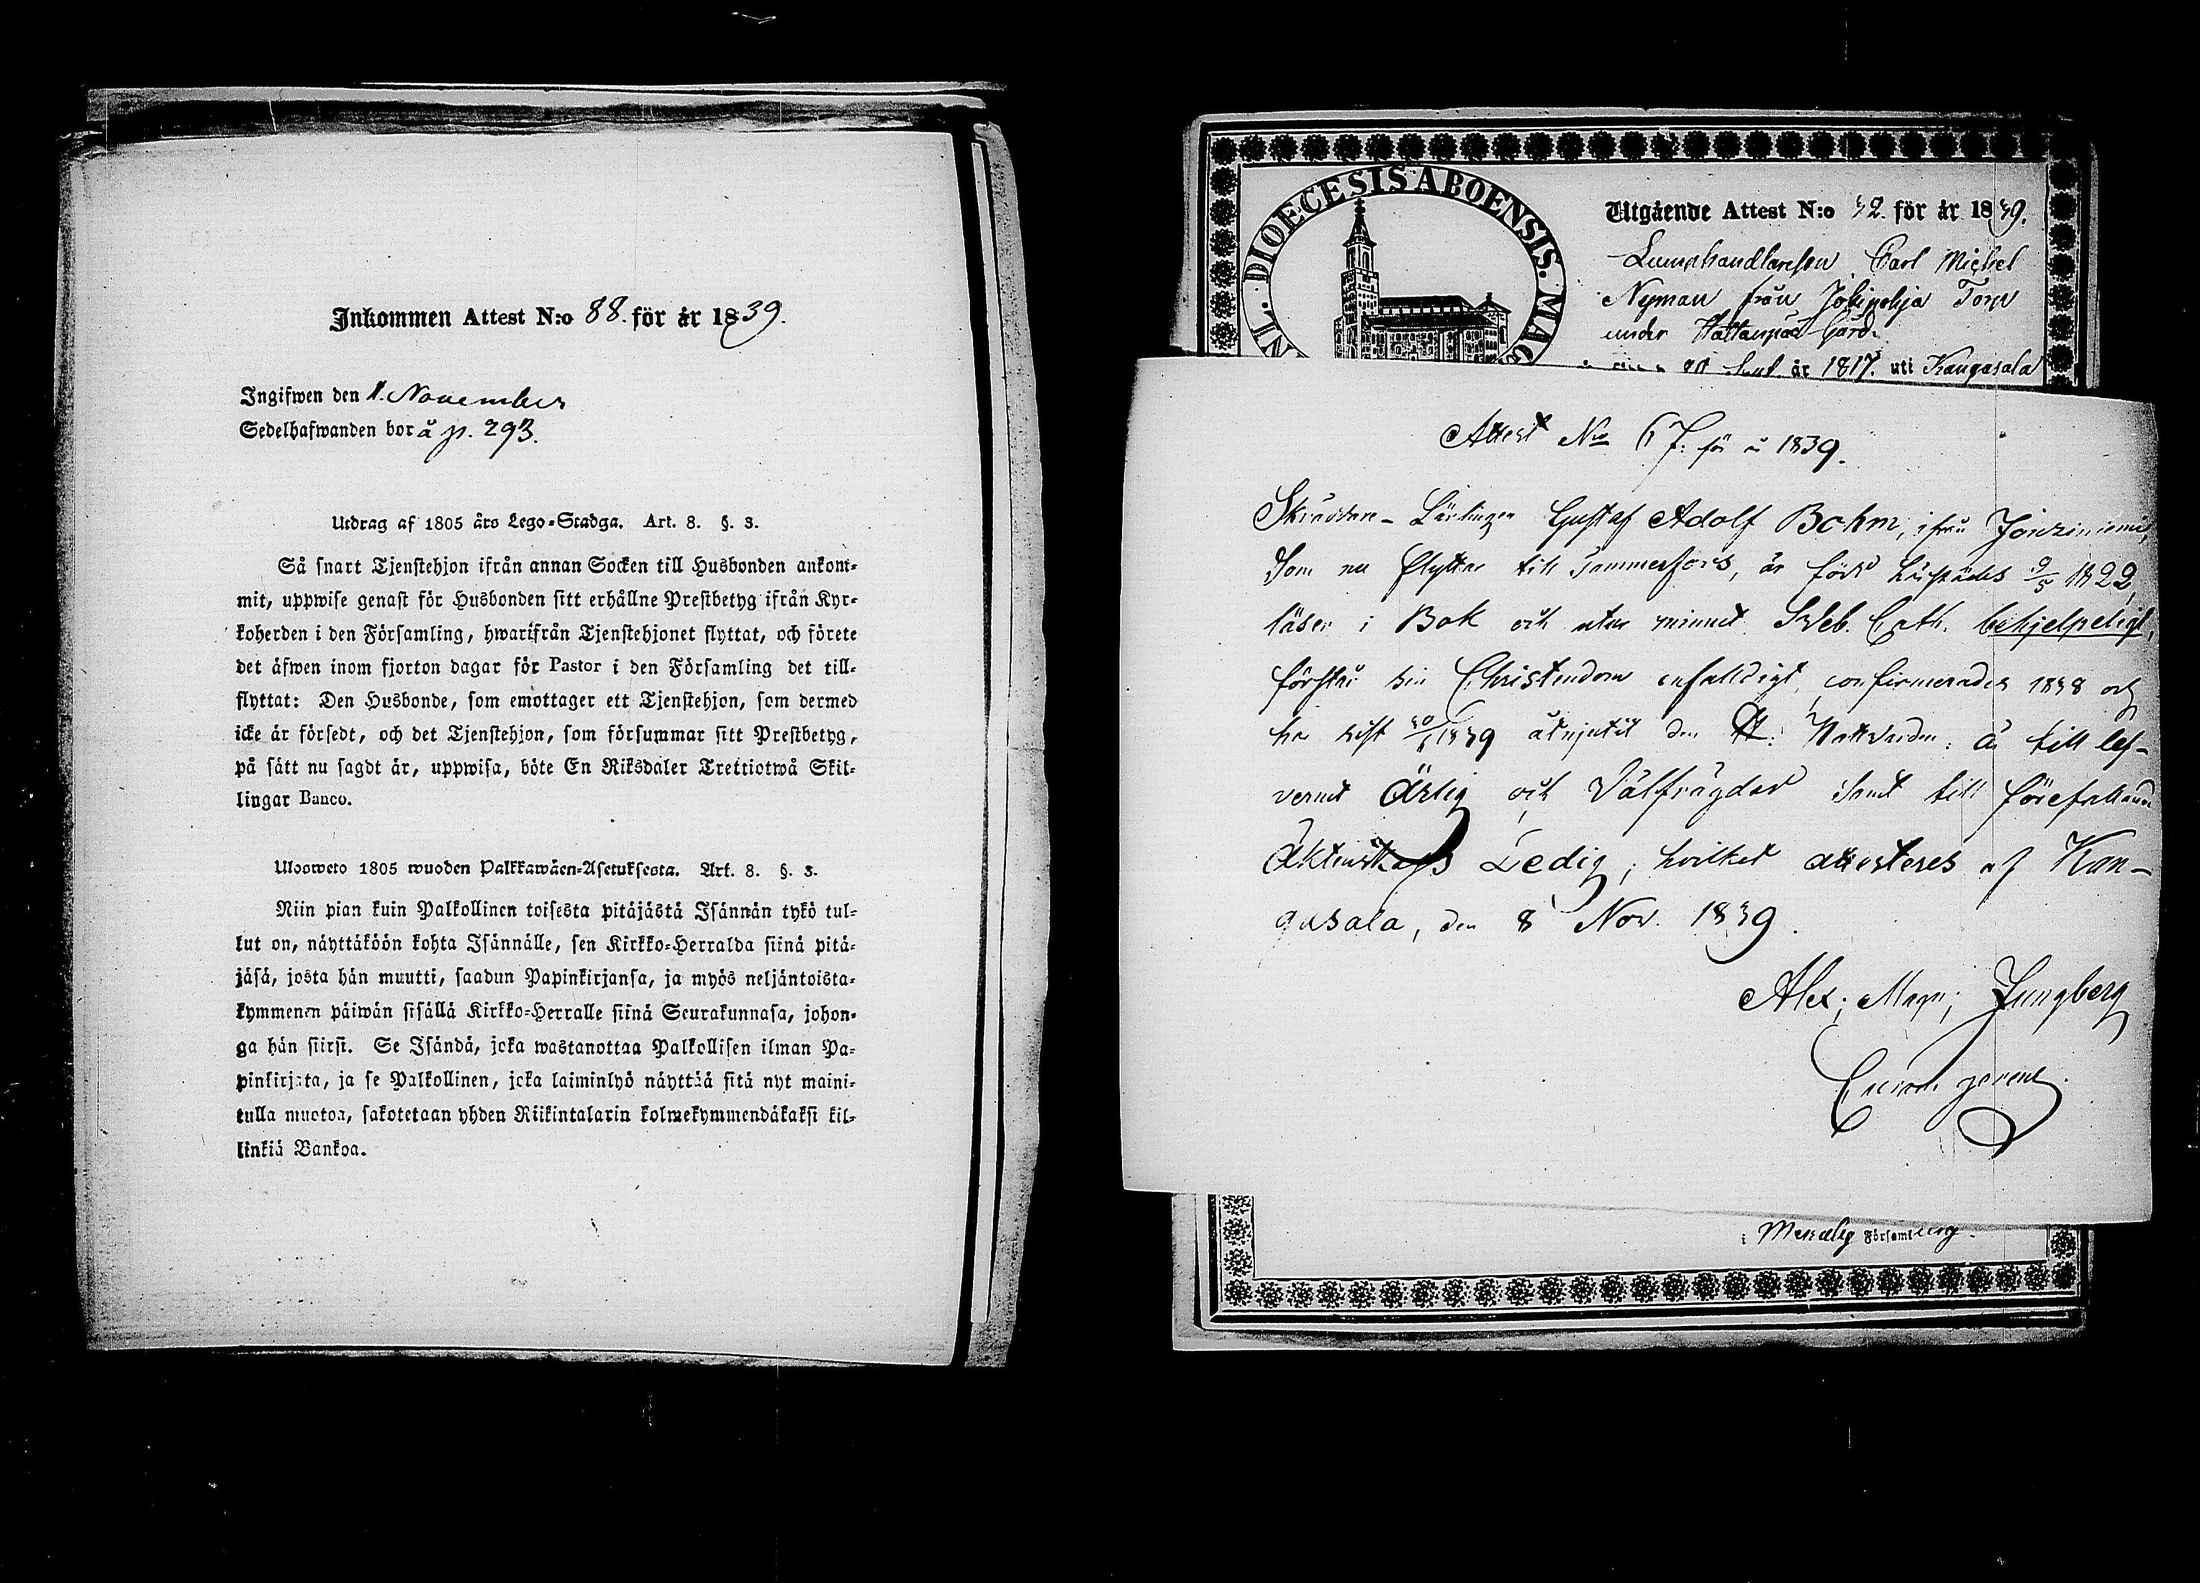 Inkommen Attest N:o 88. för år 1839.
Ingifwen den 1. November
Sedelhafwanden bor å p. 293.
Utdrag af 1805 års Lego-Stadga. Art. 8. §. 3.
Så snart Tjenstehjon ifrån annan Socken till Husbonden ankom-
mit, uppwise genast för Husbonden sitt erhållne Prestbetyg ifrån Kyr-
koherden i den Församling, hwarifrån Tjenstehjonet flyttat, och förete
det äfwen inom fjorton dagar för Pastor i den Församling det till-
flyttat: Den Husbonde, som emottager ett Tjenstehjon, som dermed
icke är försedt, och det Tjenstehjon, som försummar sitt Prestbetyg,
på sätt nu sagdt är, uppwisa, böte En Riksdaler Trettiotwå Skil-
lingar Banco.
Ulosweto 1805 wuoden Palkkawäen-Asetuksesta. Art. 8. §. 3.
Niin pian kuin Palkollinen toisesta pitäjästä Isännän tykö tul-
lut on, näyttäköön kohta Isännälle, sen Kirkko-Herralda siinä pitä-
jäsä, josta hän muutti, saadun Papinkirjansa, ja myös neljäntoista-
kymmenen päiwän sisällä Kirkko-Herralle siinä Seurakunnasa, johon-
ga hän siirsi. Se Isändä, joka wastanottaa Palkollisen ilman Pa-
pinkirjata, ja se Palkollinen, joka laiminlyö näyttää sitä nyt maini-
tulla muotoa, sakotetaan yhden Riikintalarin kolmekymmendäkaksi kil-
linkiä Bankoa.
IN. DIOECESIS ABOENSIS. MAG
Utgående Attest N:o 32. för år 1839.
Lumphandlaresson Carl Michel
Nyman från Jokipohja Torp
under Hattanpää Gård.
år 1817. uti Kangasala
Attest No 67. för å 1839.
Skräddare-Lärlingen Gustaf Adolf Bohm, ifrån
Som nu flyttar till Tammerfors, är född 9/5 1822,
läser i Bok och utur minnet Sveb. Cath. behjelpeligt,
förstår sin Christendom enfalldigt, confirmerades 1838 och
har sist 1839 åtnjutit den H. Nattvarden: är till lef-
vernet Ärlig och Välfrägdad samt till förefallande
Äktenskaps Ledig; hvilket attesteres af Kan-
gasala, den 8 Nov. 1839.
Alex; Magn; Ljungberg
i Församling.